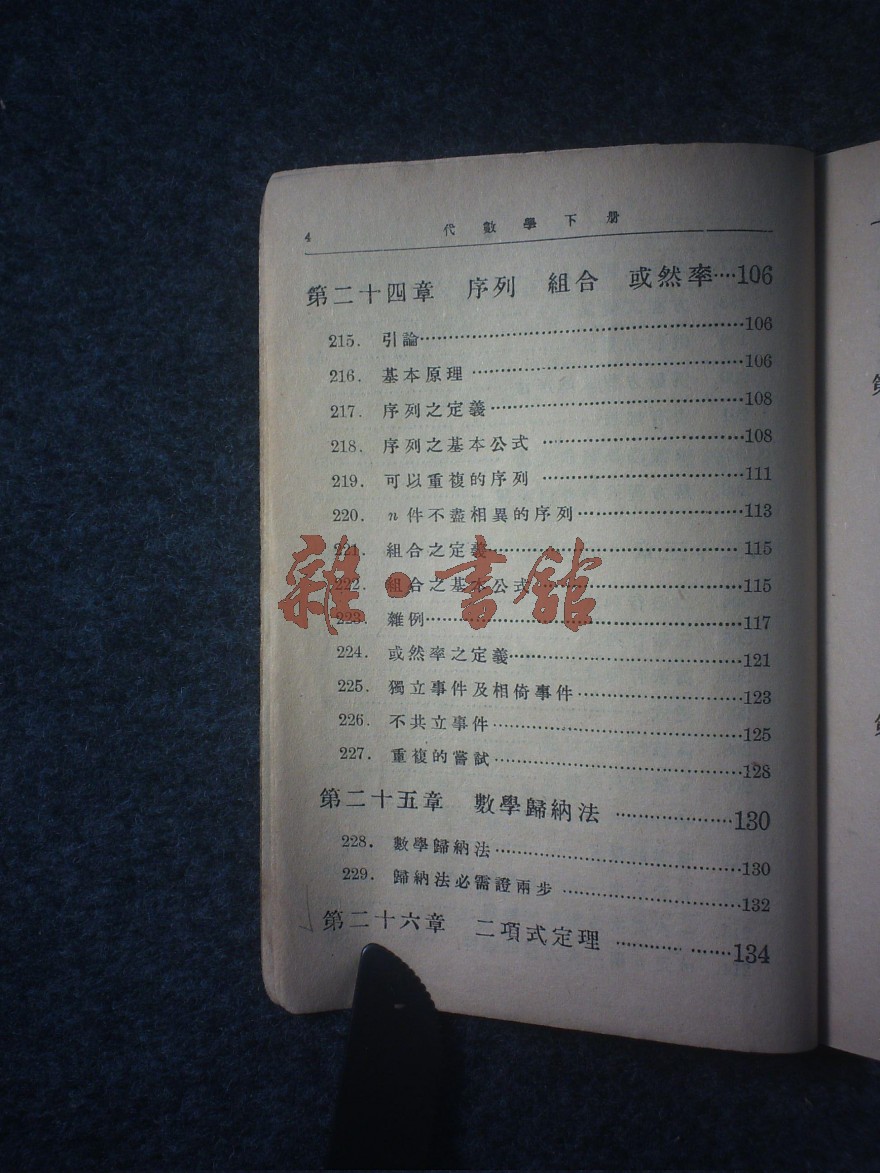 4 代數學下册
第二十四章 序列 組合 或然率····106
215. 引論····106
216. 基本原理····106
217. 序列之定義····108
218. 序列之基本公式····108
219. 可以重複的序列····111
220. n件不盡相異的序列····113
221. 組合之定義····115
222. 組合之基本公式····115
223. 雜例····117
224. 或然率之定義····121
225. 獨立事件及相倚事件····123
226. 不共立事件····125
227. 重複的嘗試····128
第二十五章 數學歸納法····130
228. 數學歸納法····130
229. 歸納法必需證兩步····132
第二十六章 二項式定理····134
雜·書館